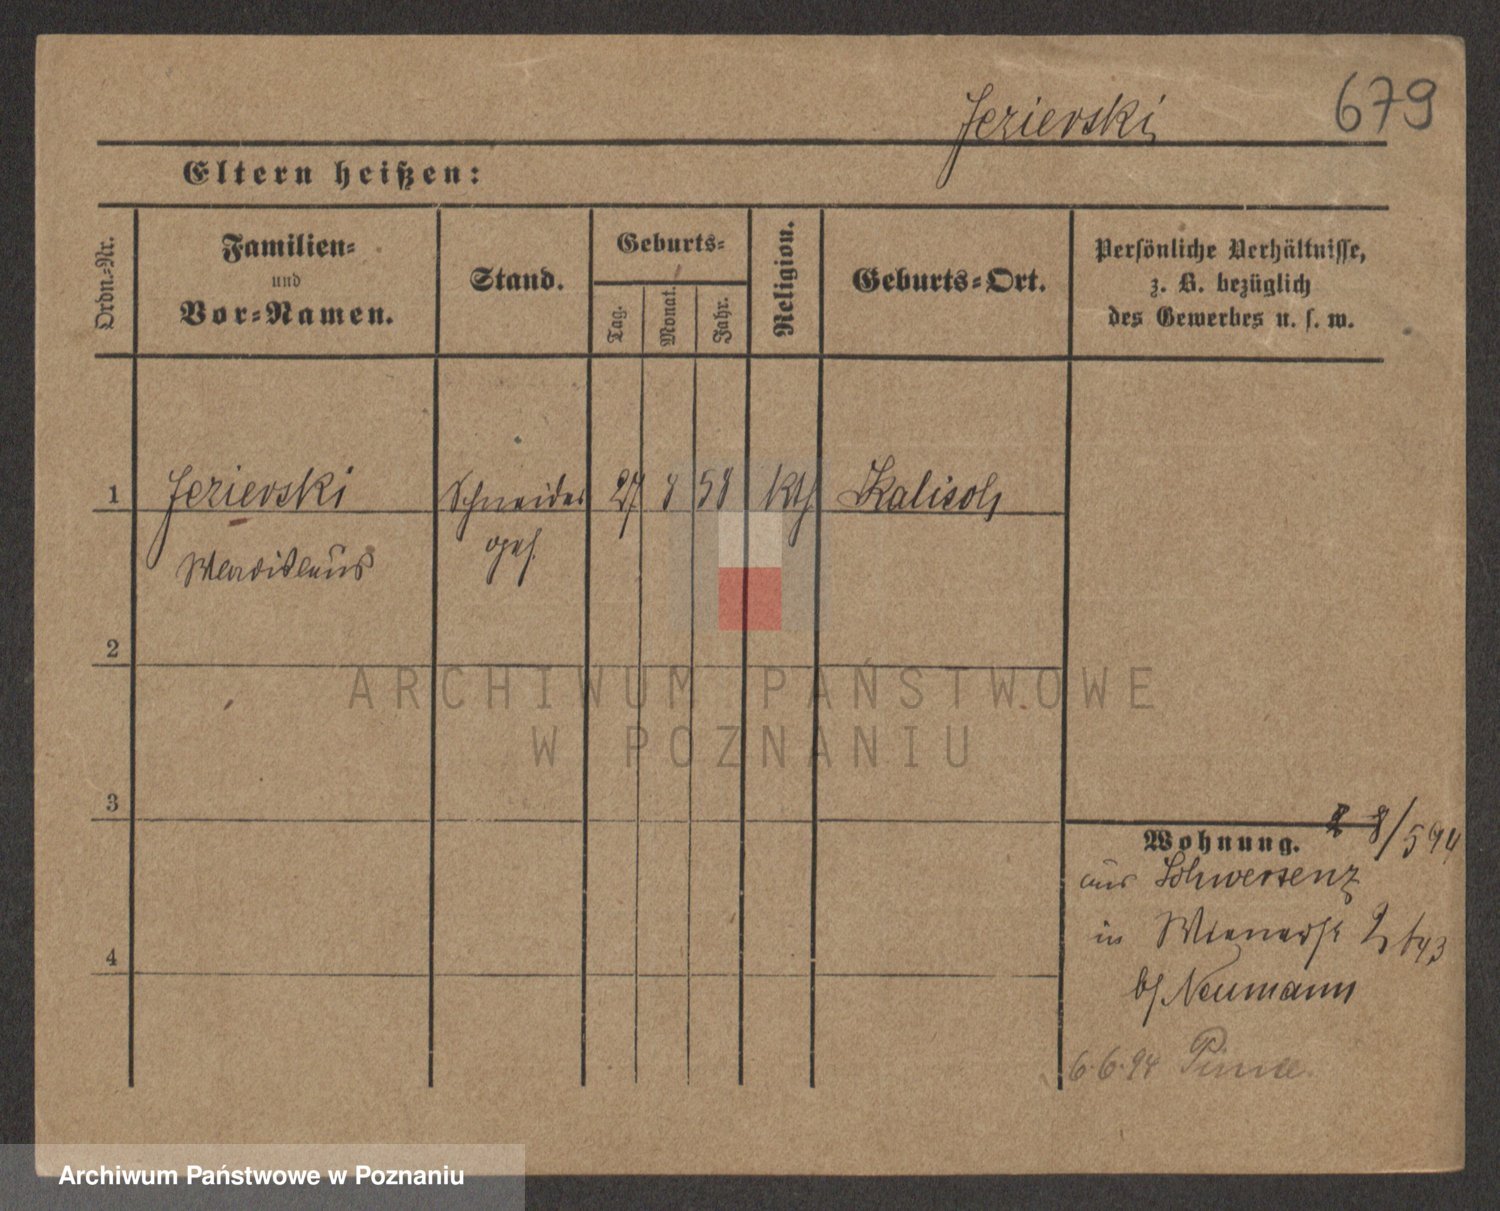 Jezierski 679
Eltern heißen:
Ordn.=Nr.
Familien=
und
Vor=Namen.
Stand.
Geburts=
Tag.
Monat.
Jahr.
Religion.
Geburts=Ort.
Persönliche Verhältnisse,
z. B. bezüglich
des Gewerbes u. s. w.
1 Jezierski Schneider 27 8 58 kth Kalisch
Wladislaus ges.
2
ARCHIWUM PAŃSTWOWE
W POZNANIU
3
8/5 94
Wohnung.
aus Schwersenz
in Wienerst
b/ Neumann
4
6.6.94 Pinne.
Archiwum Państwowe w Poznaniu